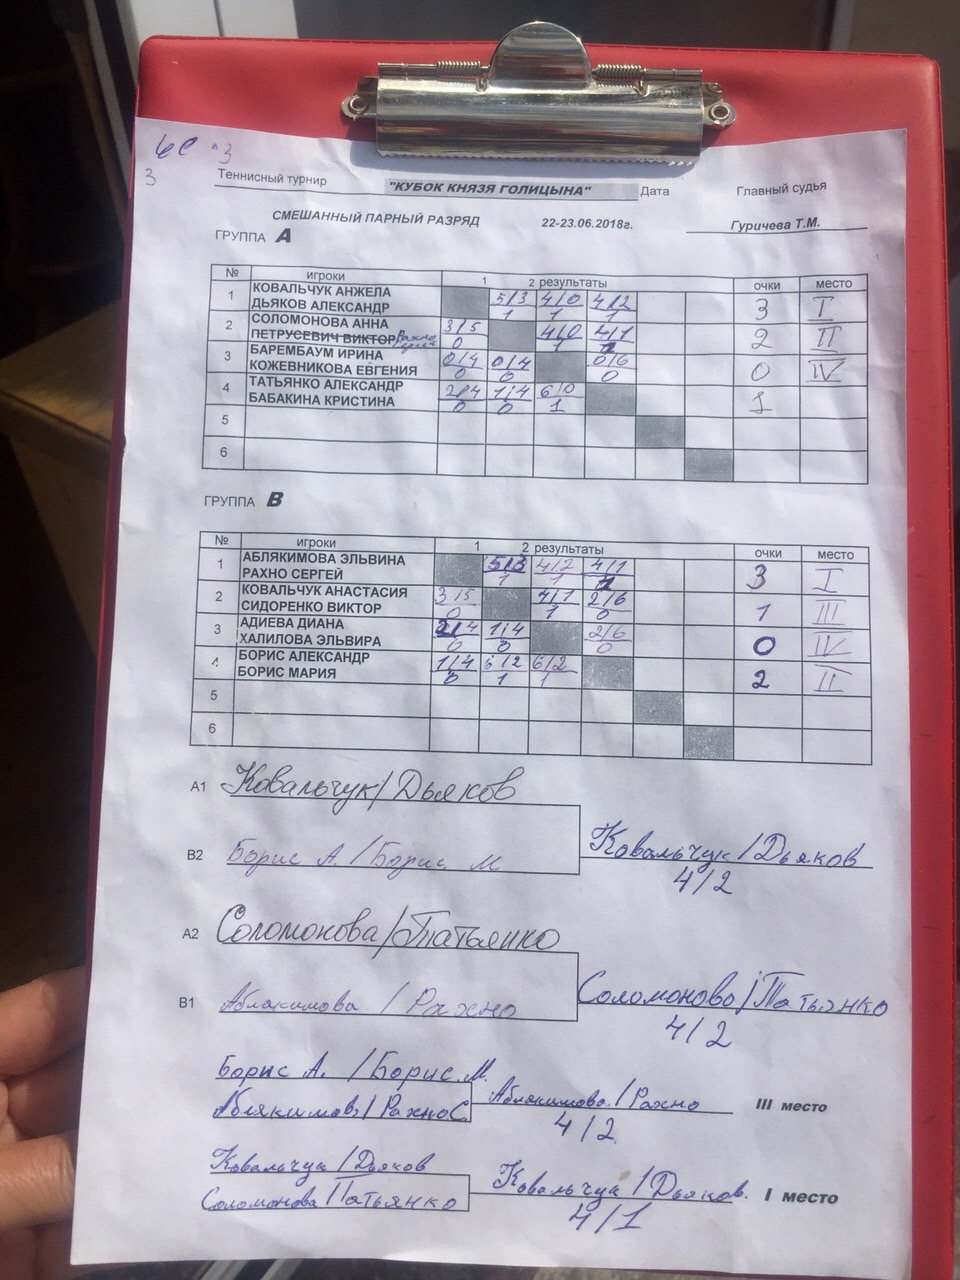 3
3
Теннисный турнир "КУБОК КНЯЗЯ ГОЛИЦЫНА" Дата Главный судья
СМЕШАННЫЙ ПАРНЫЙ РАЗРЯД 22-23.06.2018г. Гуричева Т.М.
ГРУППА A
№ игроки 1 2 результаты очки место
1 КОВАЛЬЧУК АНЖЕЛА 5/3 4/0 4/2 3 I
ДЬЯКОВ АЛЕКСАНДР 1 1 1
2 СОЛОМОНОВА АННА 3/5 4/0 4/1 2 II
ПЕТРУСЕВИЧ ВИКТОР 0 1
3 БАРЕМБАУМ ИРИНА 0/4 0/4 0/6 0 IV
КОЖЕВНИКОВА ЕВГЕНИЯ 0 0 0
4 ТАТЬЯНКО АЛЕКСАНДР 2/4 1/4 6/0 1
БАБАКИНА КРИСТИНА 0 0 1
5
6
ГРУППА B
№ игроки 1 2 результаты очки место
1 АБЛЯКИМОВА ЭЛЬВИНА 5/3 4/2 4/1 3 I
РАХНО СЕРГЕЙ 1 1
2 КОВАЛЬЧУК АНАСТАСИЯ 3/5 4/1 2/6 1 III
СИДОРЕНКО ВИКТОР 0 1 0
3 АДИЕВА ДИАНА 2/4 1/4 2/6 0 IV
ХАЛИЛОВА ЭЛЬВИРА 0 0 0
4 БОРИС АЛЕКСАНДР 1/4 6/2 6/2 2 II
БОРИС МАРИЯ 0 1 1
5
6
A1 Ковальчук/Дьяков
B2 Борис А. /Борис М.
Ковальчук/Дьяков
4/2
A2 Соломонова/Татьянко
B1 Аблякимова /Рахно
Соломоново/Татьянко
4/2
Борис А. /Борис М.
Аблякимов/РахноС.
Аблякимова./Рахно III место
4/2.
Ковальчук/Дьяков
Соломонова/Татьянко
Ковальчук/Дьяков. I место
4/1